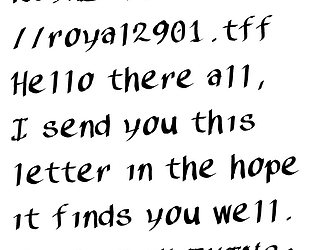 //roya12901.tff
Hello there all,
I send you this
letter in the hope
it finds you well.